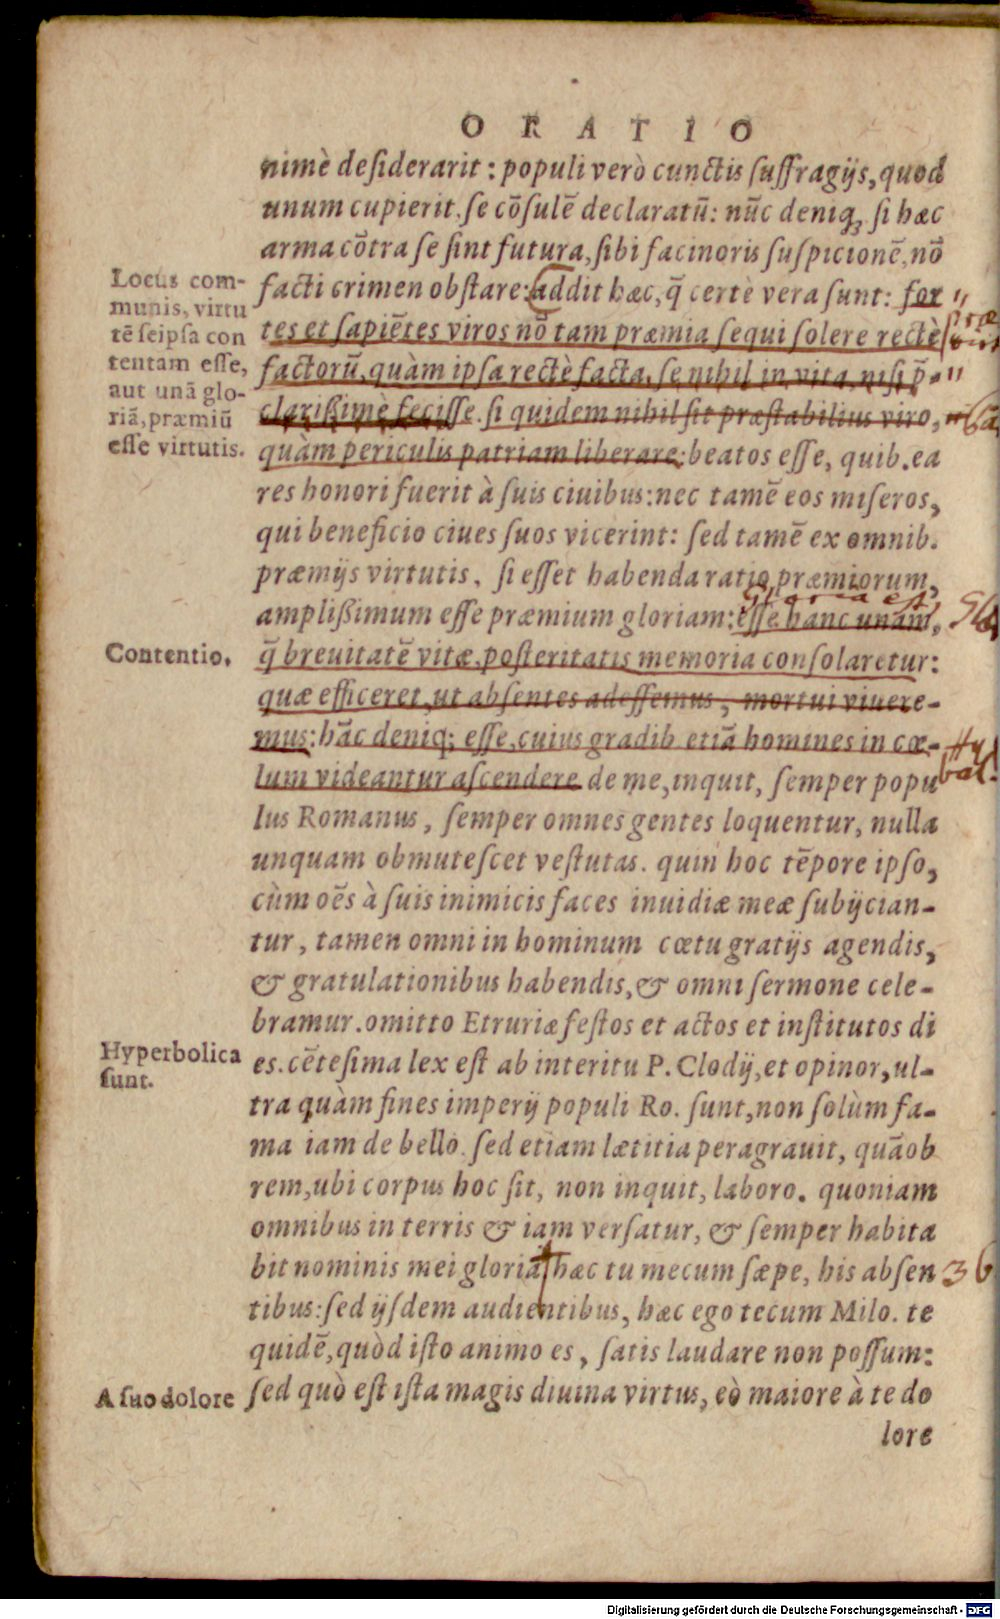 ORATIO
nimè deſiderarit: populi verò cunctis ſuffragijs, quod
unum cupierit, ſe cõſulẽ declaratũ: nũc deniq; ſi hæc
arma cõtra ſe ſint futura, ſibi facinoris ſuſpicionẽ, nõ
facti crimen obſtare: addit hæc, q̃ certè vera ſunt: for
tes et ſapiẽtes viros nõ tam præmia ſequi ſolere rectè
factorũ, quàm ipſa rectè facta. ſe nihil in vita, niſi p̃-
clarißimè feciſſe. ſi quidem nihil ſit præſtabilius viro,
quàm periculis patriam liberare: beatos eſſe, quib. ea
res honori fuerit à ſuis ciuibus: nec tamẽ eos miſeros,
qui beneficio ciues ſuos vicerint: ſed tamẽ ex omnib.
præmijs virtutis, ſi eſſet habenda ratio præmiorum,
Gloria est
amplißimum eſſe præmium gloriam: eſſe hanc unam,
q̃ breuitatẽ vitæ, poſteritatis memoria conſolaretur:
quæ efficeret, ut abſentes adeſſemus, mortui viuere-
mus: hãc deniq; eſſe, cuius gradib etiã homines in cæ-
lum videantur aſcendere de me, inquit, ſemper popu
lus Romanus, ſemper omnes gentes loquentur, nulla
unquam obmuteſcet veſtutas. quin hoc tẽpore ipſo,
cùm oẽs à ſuis inimicis faces inuidiæ meæ ſubijcian-
tur, tamen omni in hominum cœtu gratijs agendis,
& gratulationibus habendis, & omni ſermone cele-
bramur. omitto Etruriæ feſtos et actos et inſtitutos di
es. cẽteſima lex eſt ab interitu P. Clodij, et opinor, ul-
tra quàm fines imperij populi Ro. ſunt, non ſolùm fa-
ma iam de bello. ſed etiam lætitia peragrauit, quãob
rem, ubi corpus hoc ſit, non inquit, laboro. quoniam
omnibus in terris & iam verſatur, & ſemper habita
bit nominis mei gloria hæc tu mecum ſæpe, his abſen
36
tibus: ſed ijſdem audientibus, hæc ego tecum Milo. te
quidẽ, quòd iſto animo es, ſatis laudare non poſſum:
ſed quò eſt iſta magis diuina virtus, eò maiore à te do
lore
Locus com-
munis, virtu
tẽ ſeipſa con
tentam eſſe,
aut unã glo-
riã, præmiũ
eſſe virtutis.
Contentio.
Hyperbolica
ſunt.
A ſuo dolore
Digitalisierung gefördert durch die Deutsche Forschungsgemeinschaft - DFG